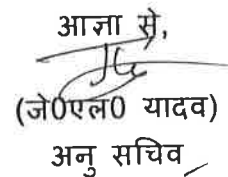 आज्ञा से,
(जे0एल0 यादव)
अनु सचिव